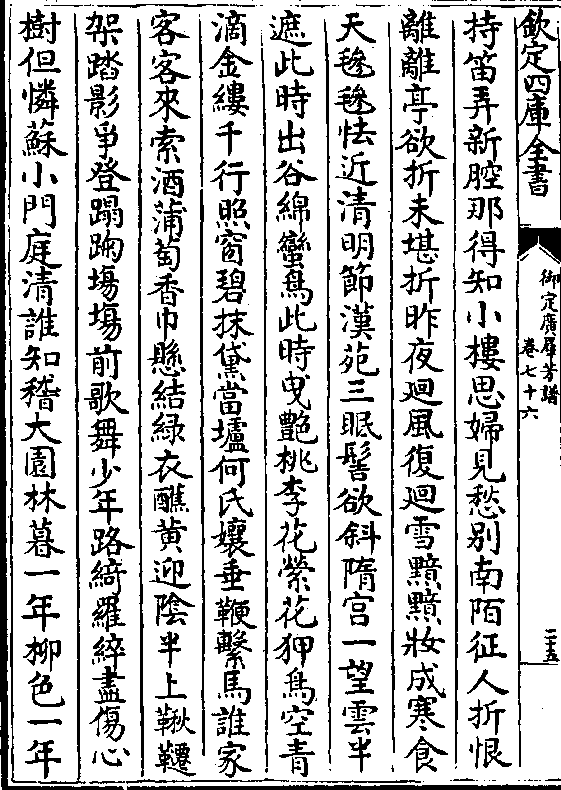 欽定四庫全書
御定廣羣芳譜
卷七十六
二十五
持笛弄新腔那得知小樓思婦見愁别南陌征人折恨
離離亭欲折未堪折昨夜廻風復廻雪黯黯妝成寒食
天毿毿怯近清明節漢苑三眠髻欲斜隋宫一望雲半
遮此時出谷綿蠻鳥此時曵艷桃李花縈花狎鳥空青
滴金縷千行照窗碧抹黛當壚何氏孃垂鞭繫馬誰家
客客來索酒蒲萄香巾懸結緑衣醮黄迎陰半上鞦韆
架踏影爭登蹋踘塲塲前歌舞少年路綺羅綷盡傷心
樹但憐蘇小門庭清誰知嵇大園林暮一年柳色一年